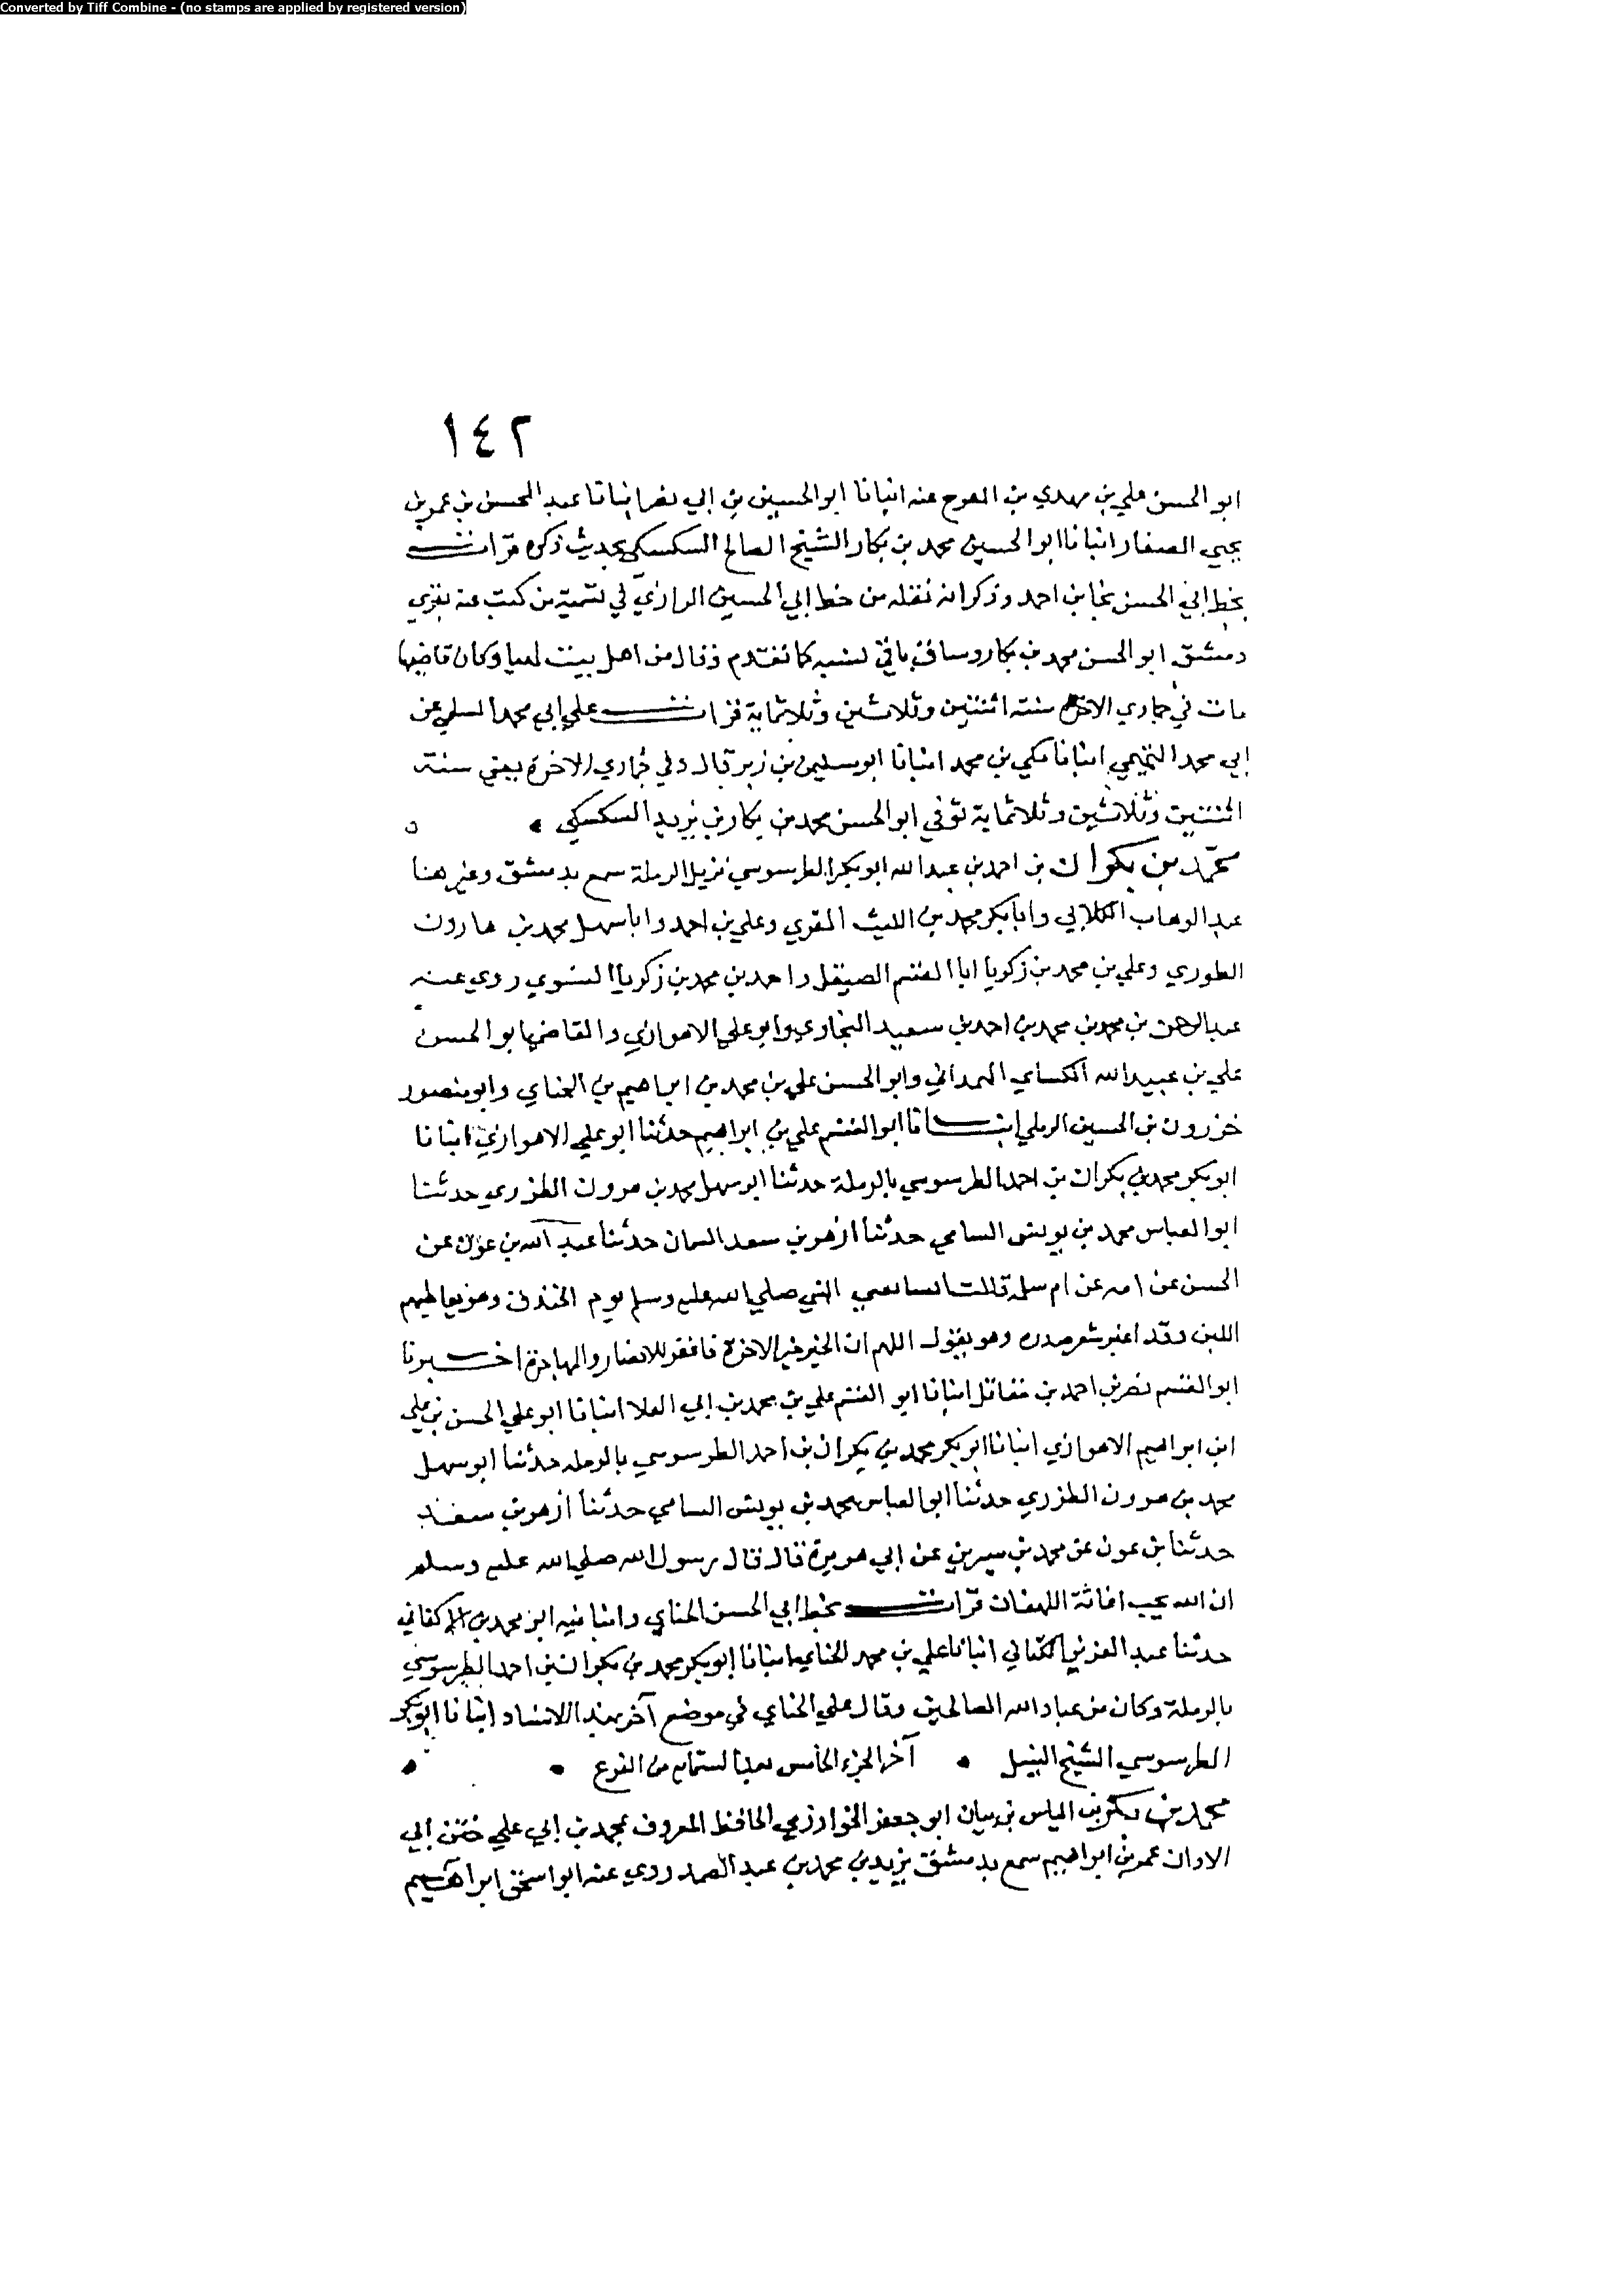 Converted by Tiff Combine - (no stamps are applied by registered version)
١٤٢
ابو الحسن علي بن مهدي بن المفرج عنه انبانا ابو الحسين بن ابي نصر انبانا عبد المحسن بن عمر بن
يحيى الصفار انبانا ابو الحسين محمد بن بكار الشيخ الصالح السكسكي بحديث ذكره قرات
بخط ابي الحسن نجا بن احمد وذكر انه نقله من خط ابي الحسين الرازي في تسمية من كتب عنه بقري
دمشق ابو الحسن محمد بن بكار وساق باقي نسبه كما تقدم وقال من اهل بيت لهيا وكان قاضيها
مات في جمادي الاخرة سنة اثنتين وثلاثين وثلاثماية قرات علي ابي محمد السلمي عن
ابي محمد التميمي انبانا مكي بن محمد انبانا ابو سليمن بن زبر قال وفي جمادي الاخرة يعني سنة
اثنتين وثلاثين وثلاثماية توفي ابو الحسن محمد بن بكار بن يزيد السكسكي
محمد بن بكران بن احمد بن عبد الله ابو بكر الطرسوسي نزيل الرملة سمع بدمشق وغيرها
عبد الوهاب الكلابي وابا بكر محمد بن الليث المقري وعلي بن احمد وابا سهل محمد بن هارون
الطوري وعلي بن محمد بن زكريا ابا القسم الصيقل واحمد بن محمد بن زكريا النسوي روي عنه
عبد الرحمن بن محمد بن محمد بن احمد بن سعيد البخاري وابو علي الاهوازي والقاضي ابو الحسن
علي بن عبيد الله الكساي الهمداني وابو الحسن علي بن محمد بن ابراهيم بن الحناي وابو منصور
خزرون بن الحسين الرملي انبانا ابو القسم علي بن ابراهيم حدثنا ابو علي الاهوازي انبانا
ابو بكر محمد بن بكران بن احمد الطرسوسي بالرملة حدثنا ابو سهل محمد بن هرون الطزري حدثنا
ابو العباس محمد بن يونس السامي حدثنا ازهر بن سعد السمان حدثنا عبد الله بن عون عن
الحسن عن امه عن ام سلمة قالت النبي صلي الله عليه وسلم يوم الخندق وهو يعاطيهم
اللبن وقد اغبر شعر صدره وهو يقول اللهم ان الخير خير الاخرة فاغفر للانصار والمهاجرة اخبرنا
ابو القسم نصر بن احمد بن مقاتل انبانا ابو القسم علي بن محمد بن ابي العلا انبانا ابو علي الحسن بن علي
ابن ابراهيم الاهوازي انبانا ابو بكر محمد بن بكران بن احمد الطرسوسي بالرملة حدثنا ابو سهل
محمد بن هرون الطزري حدثنا ابو العباس محمد بن يونس السامي حدثنا ازهر بن سعد
حدثنا بن عون عن محمد بن سيرين عن ابي هريرة قال قال رسول الله صلي الله عليه وسلم
ان الله يحب اغاثة اللهفان قرات بخط ابي الحسن الحناي وانبا نيه ابو محمد بن الاكفاني
حدثنا عبد العزيز الكتاني انبانا علي بن محمد الحناي انبانا ابو بكر محمد بن بكران بن احمد الطرسوسي
بالرملة وكان من عباد الله الصالحين وقال علي الحناي في موضع آخر بهذا الاسناد انبانا ابو بكر
الطرسوسي الشيخ النبيل آخر الجزء الخامس بعد الستماية من الفرع
محمد بن بكر بن الياس بن بيان ابو جعفر الخوارزمي الحافظ المعروف بمحمد بن ابي علي ختن ابي
الاذان عمر بن ابراهيم سمع بدمشق يزيد بن محمد بن عبد الصمد روي عنه ابو اسحق ابراهيم